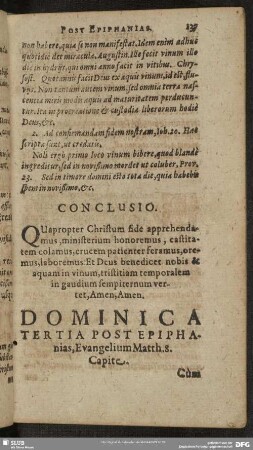 POST EPIPHANIAS.
non habere, quia se non manifestat. Idem enim adhuc
quotidie Deus miracula. Augustin. Ille fecit vinum illo
die in hydriis, qui omni anno facit in vitibus. Chrys-
ost. Quot annis facit Deus ex aqua vinum, id est, plu-
via. Non tantum autem vinum, sed omnia terra nas-
centia mirè modò aquis ad maturitatem perducun-
tur. Ita in procreatione & custodia liberorum hodie
Deus, &c.
2. Ad confirmandam fidem nostram, Ioh. 20. Haec
scripta sunt, ut credatis.
Nos ergo primo loco vinum bibere, quod blandè
ingreditur, sed in novissimo mordet ut coluber, Prov.
23. Sed in timore domini esto tota die, quia habebis
spem in novissimo, &c.
CONCLUSIO.
QUapropter Christum fide apprehenda-
mus, ministerium honoremus, castita-
tem colamus, crucem patienter feramus, ore-
mus, laboremus: Et Deus benedicet nobis &
aquam in vinum, tristitiam temporalem
in gaudium sempiternum ver-
tet, Amen, Amen.
DOMINICA
TERTIA POST EPIPHA-
nias, Evangelium Matth. 8.
Capite.
Cùm
SLUB
DFG